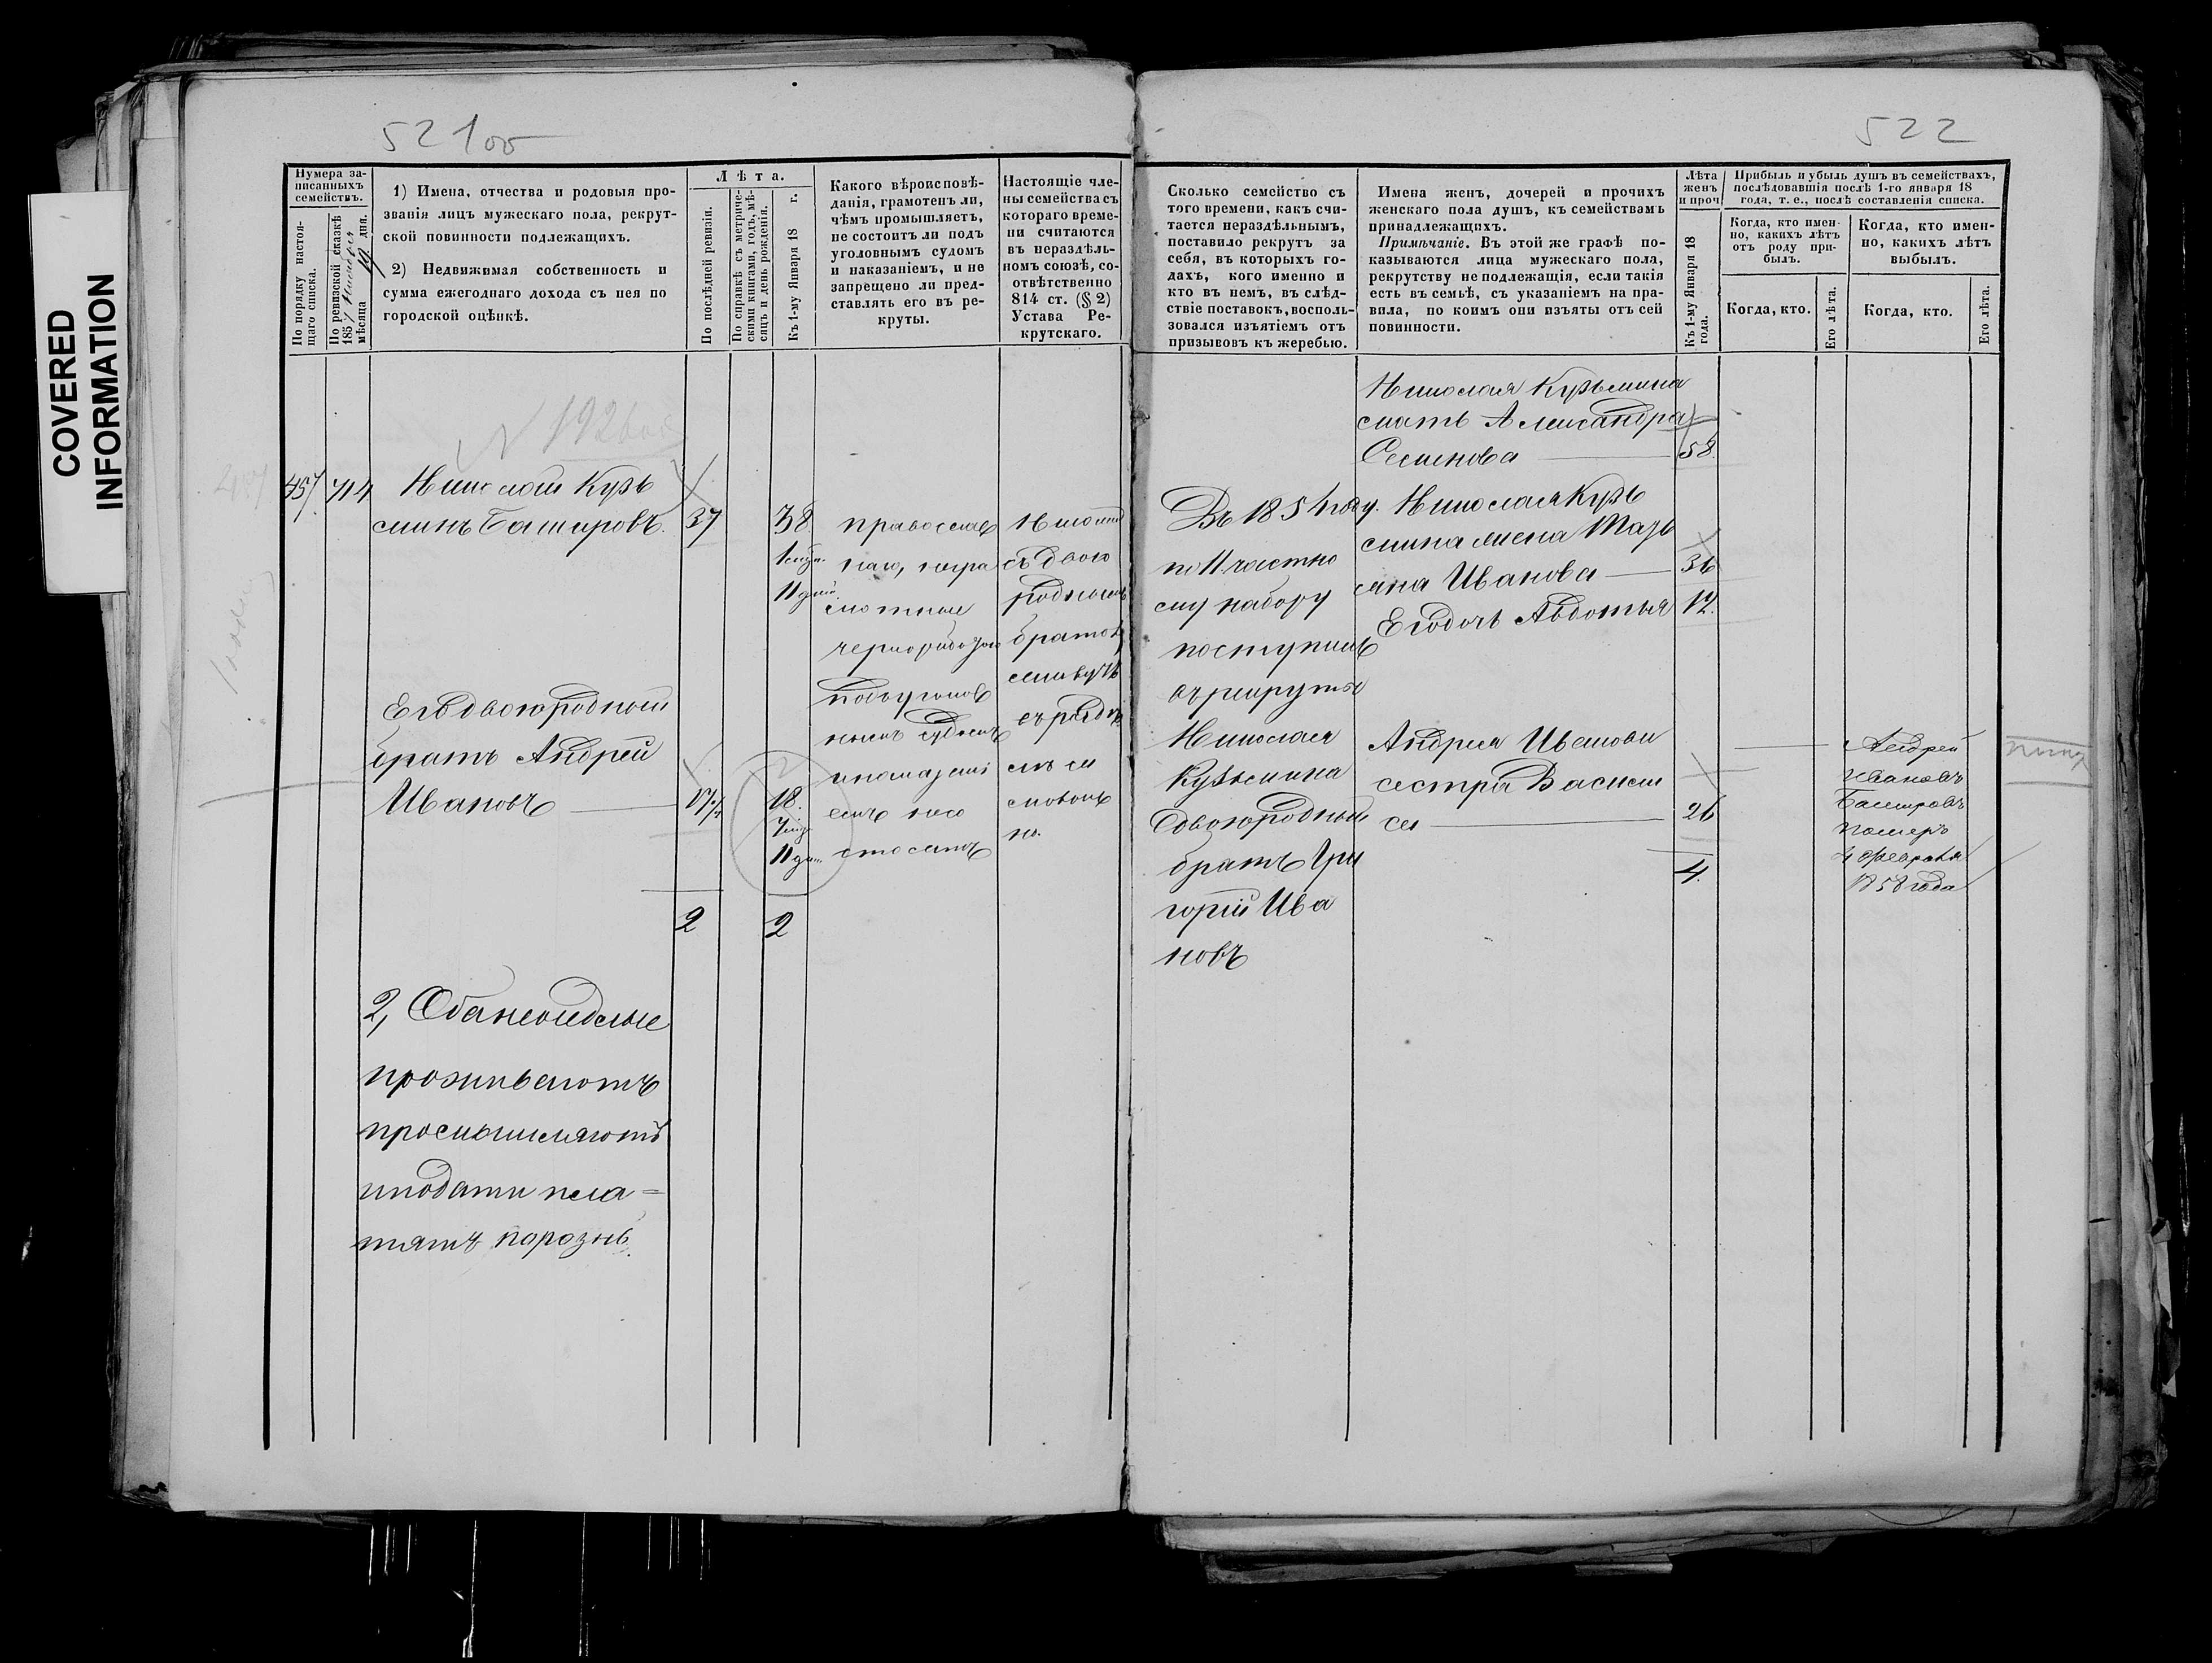 COVERED
INFORMATION
521об
522
Нумера за-
писанныхъ
семействъ.
По порядку настоя-
щаго списка.
По ревизской сказкѣ
1857
мѣсяца 19 дня.
1) Имена, отчества и родовыя про-
званія лицъ мужескаго пола, рекрут-
ской повинности подлежащихъ.
2) Недвижимая собственность и
сумма ежегоднаго дохода съ нея по
городской оцѣнкѣ.
Лѣта.
По послѣдней ревизіи.
По справкѣ съ метриче-
скими книгами, годъ, мѣ-
сяцъ и день рожденія.
Къ 1-му Января 18 г.
Какого вѣроисповѣ-
данія, грамотенъ ли,
чѣмъ промышляетъ,
не состоитъ ли подъ
уголовнымъ судомъ
и наказаніемъ, и не
запрещено ли пред-
ставлять его въ ре-
круты.
Настоящіе чле-
ны семейства съ
котораго време-
ни считаются
въ нераздѣль-
номъ союзѣ, со-
отвѣтственно
814 ст. (§ 2)
Устава Ре-
крутскаго.
457 714
Николай Кузь
минъ Башировъ. 37
38
11 дней
православ
наго, негра
мотный
чернорабочій
подъ уголов
нымъ судомъ
и наказані
емъ не со
стоятъ
съ двою
роднымъ
братомъ
Его двоюродной
братъ Андрей
Ивановъ 17
18.
7 мѣс
11 дн.
2 2
2, Оба неимѣлые
проживаютъ
промышляютъ
и подати пла=
тятъ порознь.
Сколько семейство съ
того времени, какъ счи-
тается нераздѣльнымъ,
поставило рекрутъ за
себя, въ которыхъ го-
дахъ, кого именно и
кто въ немъ, въ слѣд-
ствіе поставокъ, восполь-
зовался изъятіемъ отъ
призывовъ къ жеребью.
Имена женъ, дочерей и прочихъ
женскаго пола душъ, къ семействамъ
принадлежащихъ.
Примѣчаніе. Въ этой же графѣ по-
казываются лица мужескаго пола,
рекрутству не подлежащія, если такія
есть въ семьѣ, съ указаніемъ на пра-
вила, по коимъ они изъяты отъ сей
повинности.
Лѣта
женъ
и проч
Къ 1-му Января 18
года.
Прибыль и убыль душъ въ семействахъ,
послѣдовавшія послѣ 1-го января 18
года, т. е., послѣ составленія списка.
Когда, кто имен-
но, какихъ лѣтъ
отъ роду при-
былъ.
Когда, кто имен-
но, какихъ лѣтъ
выбылъ.
Когда, кто.
Его лѣта.
Когда, кто.
Его лѣта.
Въ 1854 году.
по 11 частно
му набору
поступилъ
въ рекруты
Николая
Кузьмина
двоюродный
братъ Гри
горій Ива
новъ
Николая Кузьмина
мать Александра
Семенова 58.
Николая Кузь
мина жена Та
Иванова 36
Его дочь Авдотья 12.
Андрея Иванова
сестра Васили
са 26
4.
Андрей
Ивановъ
Башировъ
померъ
4 февраля
1858 года